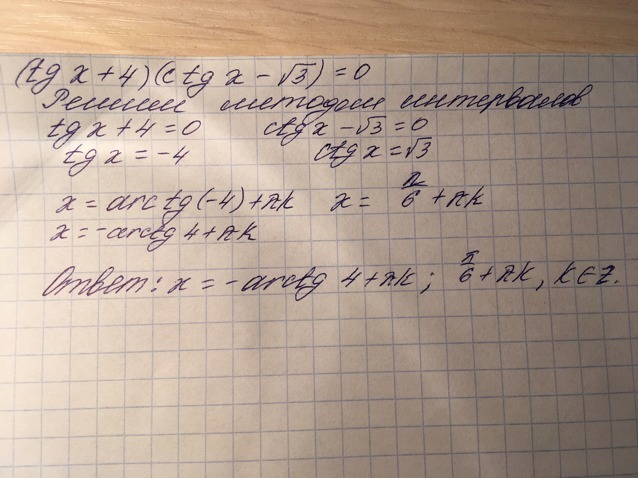 (tg x + 4)(ctg x - √3) = 0
Решим методом интервалов
tg x + 4 = 0 ctg x - √3 = 0
tg x = -4 ctg x = √3
x = arctg(-4) + πk x = π/6 + πk
x = -arctg 4 + πk
Ответ: x = -arctg 4 + πk; π/6 + πk, k ∈ z.